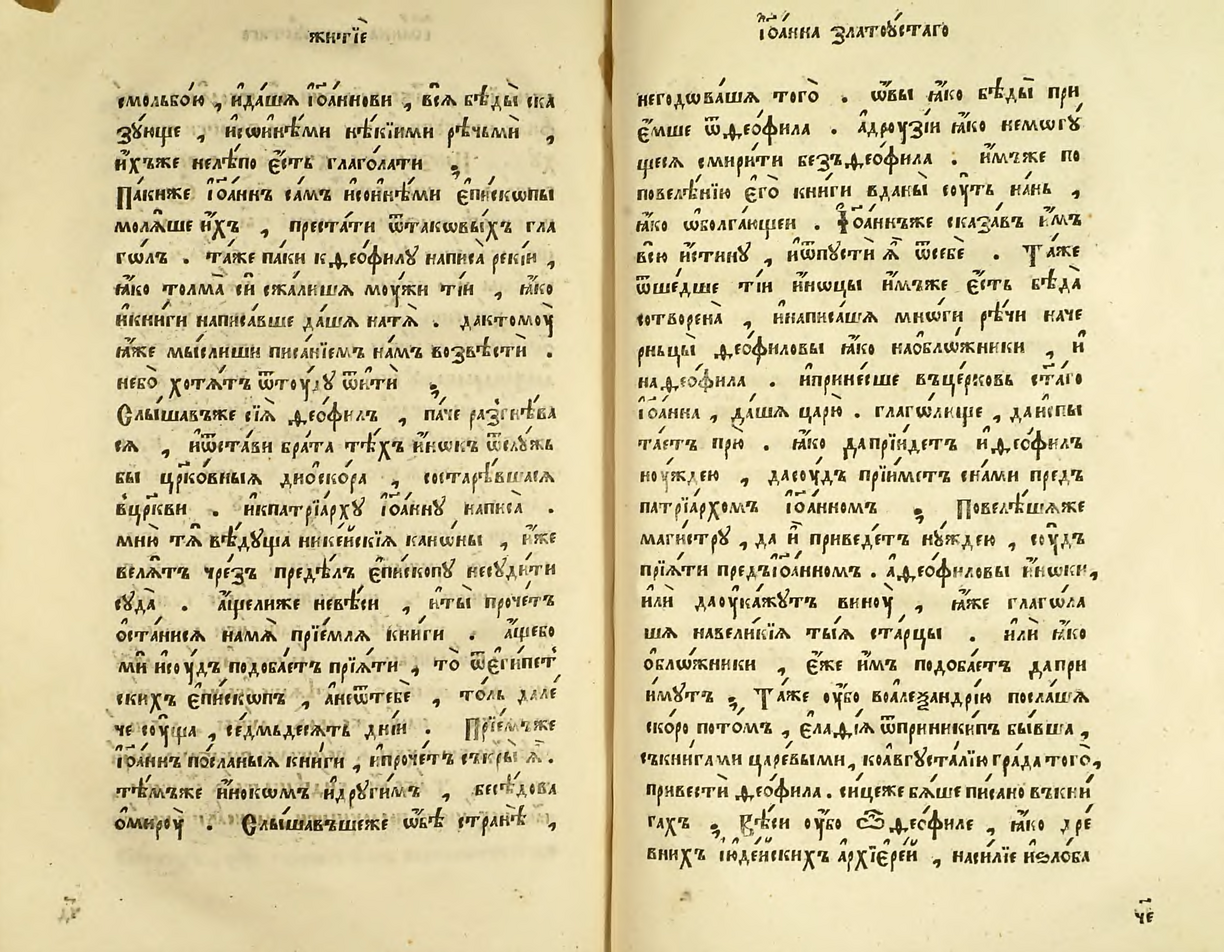 житїѐ
смольбо́ю , и҆да́шѧ і҆ѡ҃а́ннови , всѧ̀ бѣ́ды̀ ска
зꙋ́юще , и҆сѡи́нѣми нѣ́кїими рѣ́чьмѝ ,
и҆́хъже нелѣ́по є҆́сть глаго́лати ,
Па́киже і҆ѡ҃а́ннъ са́мъ и҆сои́нѣ́ми є҆пи́скѡпы
молѧ́ше и҆́хъ , преста́ти ѿтакѡвы́хъ гла
гѡ́лъ . та́же па́ки к ѳео́филꙋ написа̀ рекі́и ,
ꙗ҆́ко толма̀ сѝ сжа́лишѧ моу́жи ті́и , ꙗ҆́ко
и҆кни́ги написа́вше да́шѧ натѧ̀ . дактомоу̀
ꙗ҆́же мы́слиши писа́нїемъ на́мъ возвѣ́стѝ .
небо̀ хотѧ́тъ ѿтоу́дꙋ ѿи́ти ,
Слы́шавъже сїѧ̀ ѳео́филъ , па́че разгнѣ́ва
сѧ , и҆ѿста́ви бра́та тѣ́хъ и҆́нокъ ѿслꙋ́жь
бы цр҃ко́вныѧ дио́скора , состарѣ́вшасѧ
вц҃ркви . и҆кпатрїа́рхꙋ і҆ѡ҃а́ннꙋ написа̀ .
мню̀ тѧ̀ вѣ́дꙋща нике́йскїѧ кано́ны , и҆́же
велѧ́тъ чре́зъ предѣ́лъ є҆пи́скопꙋ несꙋди́ти
сꙋда̀ . а҆́щелиже невѣ́си , и҆ты̀ проче́тъ
оста́нисѧ на́мѧ̀ прїе́млѧ кни́ги . а҆́щебо
мѝ и҆соу́дъ подоба́етъ прїѧ́ти , то̀ ѿе҆ги́пет
скихъ є҆пи́скѡпъ , а҆неѿтебѐ , то́ль дале́
че соу́ща , се́дмьдесѧ́ть дні́и . Прїе́мъже
і҆ѡ҃а́ннъ по́сланыѧ кни́ги , и҆проче́тъ съкры̀ ѧ҆̀ .
тѣ́мъже и҆́нокѡмъ и҆дрꙋги́мъ , бесѣ́дова
о҆ми́роу̀ . Слы́шавъшеже ѻ҆́бѣ странѣ̀ ,
х҃д
і҆ѡ҃а́нна златоу́стаго
негодѡва́шѧ того̀ . ѡ҆́вы ꙗ҆́ко бѣ́ды̀ при
є҆́мше ѿѳео́фила . а҆дроузі́и ꙗ҆́ко немогꙋ́
щесѧ смири́ти безъѳео́фила . и҆́мъже по
повелѣ́нїю є҆го̀ кни́ги вданы̀ соу́ть на́нь ,
ꙗ҆́ко ѡ҆болга́ющеи . І҆ѡ҃а́ннъже сказа́въ и҆́мъ
всю̀ и҆́стинꙋ , и҆ѿпꙋстѝ ѧ҆̀ ѿсебѐ . Та́же
ѿше́дше ті́и и҆́ноцы и҆́мъже є҆́сть бѣ́да̀
сотворена̀ , и҆написа́шѧ мнѡ́ги рѣ́чи наче
рньцы̀ ѳео́филовы ꙗ҆́ко наобло́жники , и҆̀
наѳео́фила . и҆прине́сше въце́рковь ст҃а́го
і҆ѡ҃а́нна , да́шѧ царю̀ . глагѡ́люще , даи҆спы
та́етъ прю̀ . ꙗ҆́ко да́прїи́детъ и҆ѳео́филъ
ноу́ждею , дасоу́дъ прїи́метъ сна́ми предъ
патрїа́рхомъ і҆ѡ҃а́нномъ , Повелѣ́шѧже
маги́стрꙋ , да и҆̀ приведе́тъ нꙋ́ждею , соу́дъ
прїѧ́ти предъі҆ѡ҃а́нномъ . а҆ѳео́филовы и҆́ноки ,
и҆лѝ даоука́жꙋтъ виноу̀ , ꙗ҆́же глагѡ́ла
шѧ навели́кїѧ ты́ѧ ста́рцы . и҆лѝ ꙗ҆́ко
о҆бло́жники , є҆́же и҆́мъ подоба́етъ да́при
и҆́мꙋтъ , Та́же оу҆́бо воалеѯа́ндрїю посла́шѧ
ско́ро пото́мъ , є҆ла́дїѧ ѿпри́никипъ бы́вша ,
съкни́гами царе́выми , коа҆вгꙋста́лїю гра́да того̀ ,
привести́ ѳео́фила . си́цеже бѧ́ше пи́сано въкни́
гахъ , Вѣ́си оу҆́бо ѽ ѳео́филе , ꙗ҆́ко дре́
внихъ і҆ꙋде́йскихъ а҆рхїере́й , наси́лїе и҆зло́ба
ч҃е